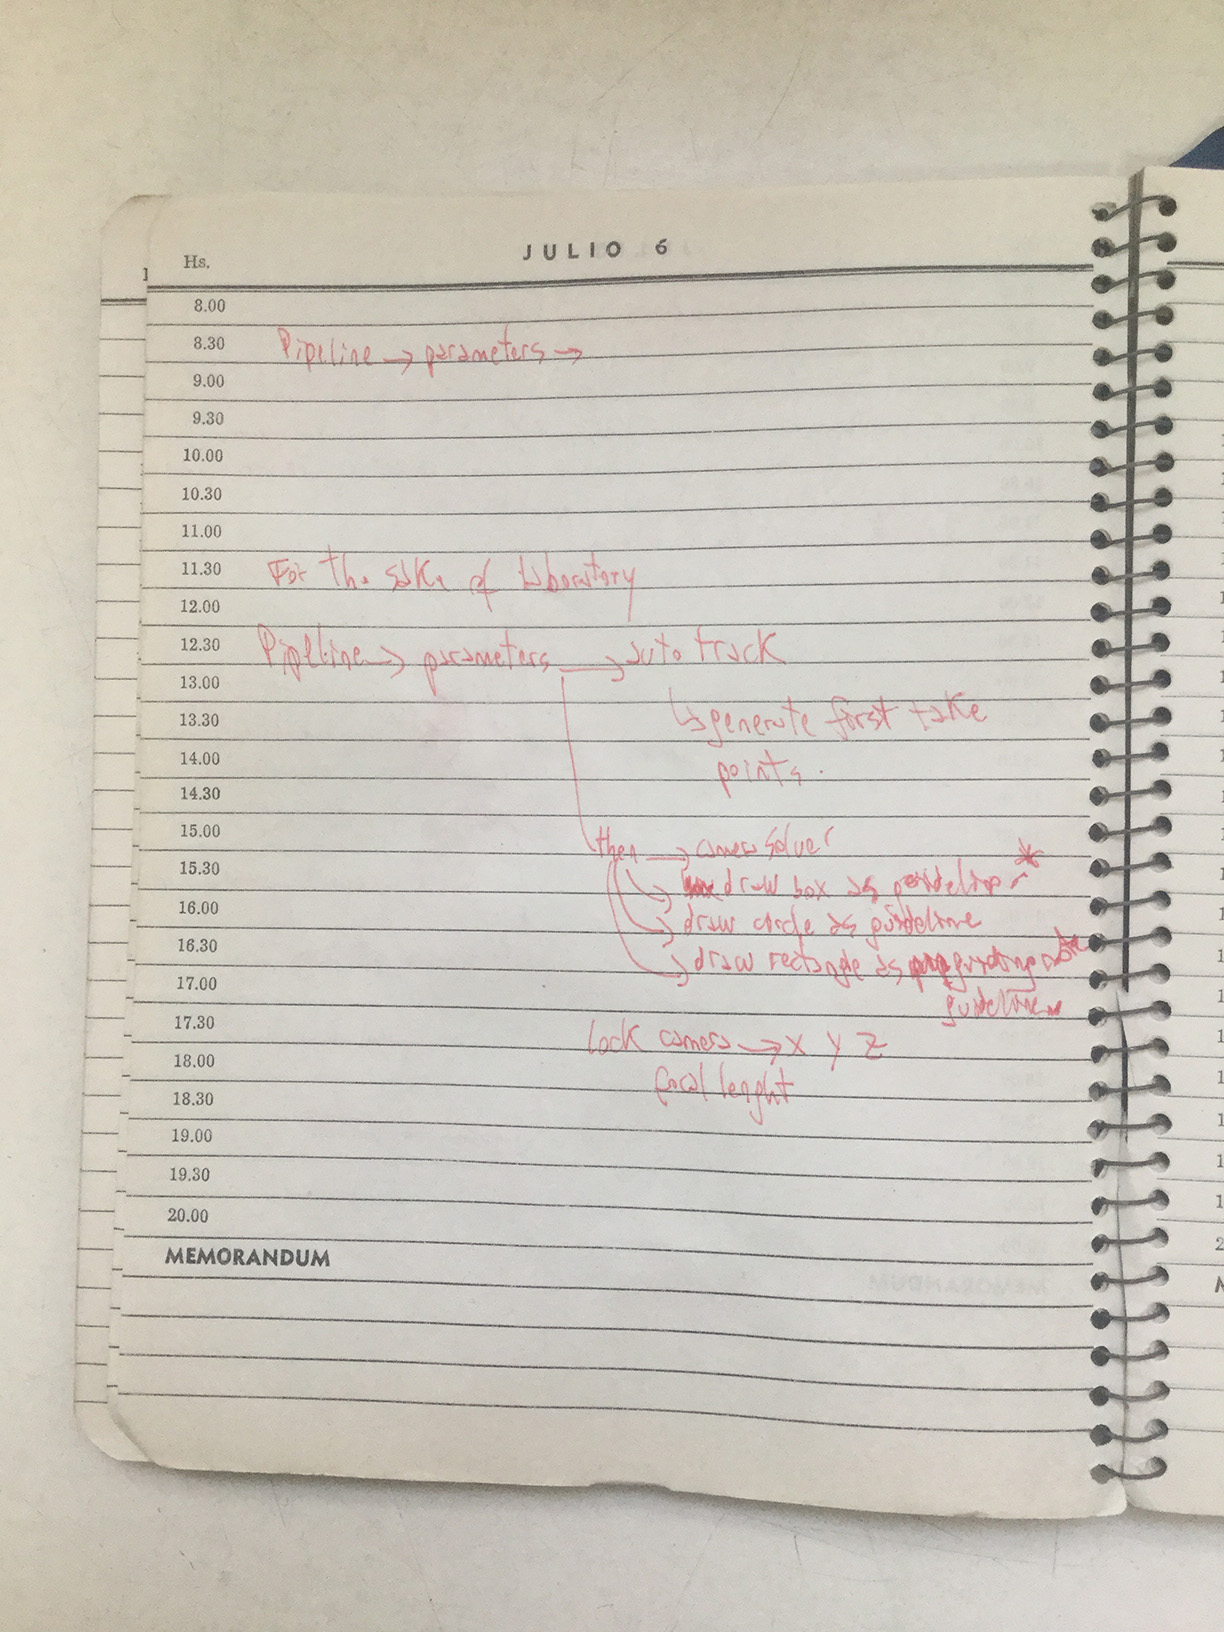 JULIO 6
Hs.
8.00
8.30 Pipeline → parameters →
9.00
9.30
10.00
10.30
11.00
11.30 For the sake of laboratory
12.00
12.30 Pipeline → parameters → auto track
13.00
13.30 ↳ generate first take
14.00 points.
14.30
15.00 then → camera solver
15.30 → draw box as guideline *
16.00 → draw circle as guideline
16.30 → draw rectangle as guiding
17.00 guideline
17.30 lock camera → x y z
18.00 focal lenght
18.30
19.00
19.30
20.00
MEMORANDUM